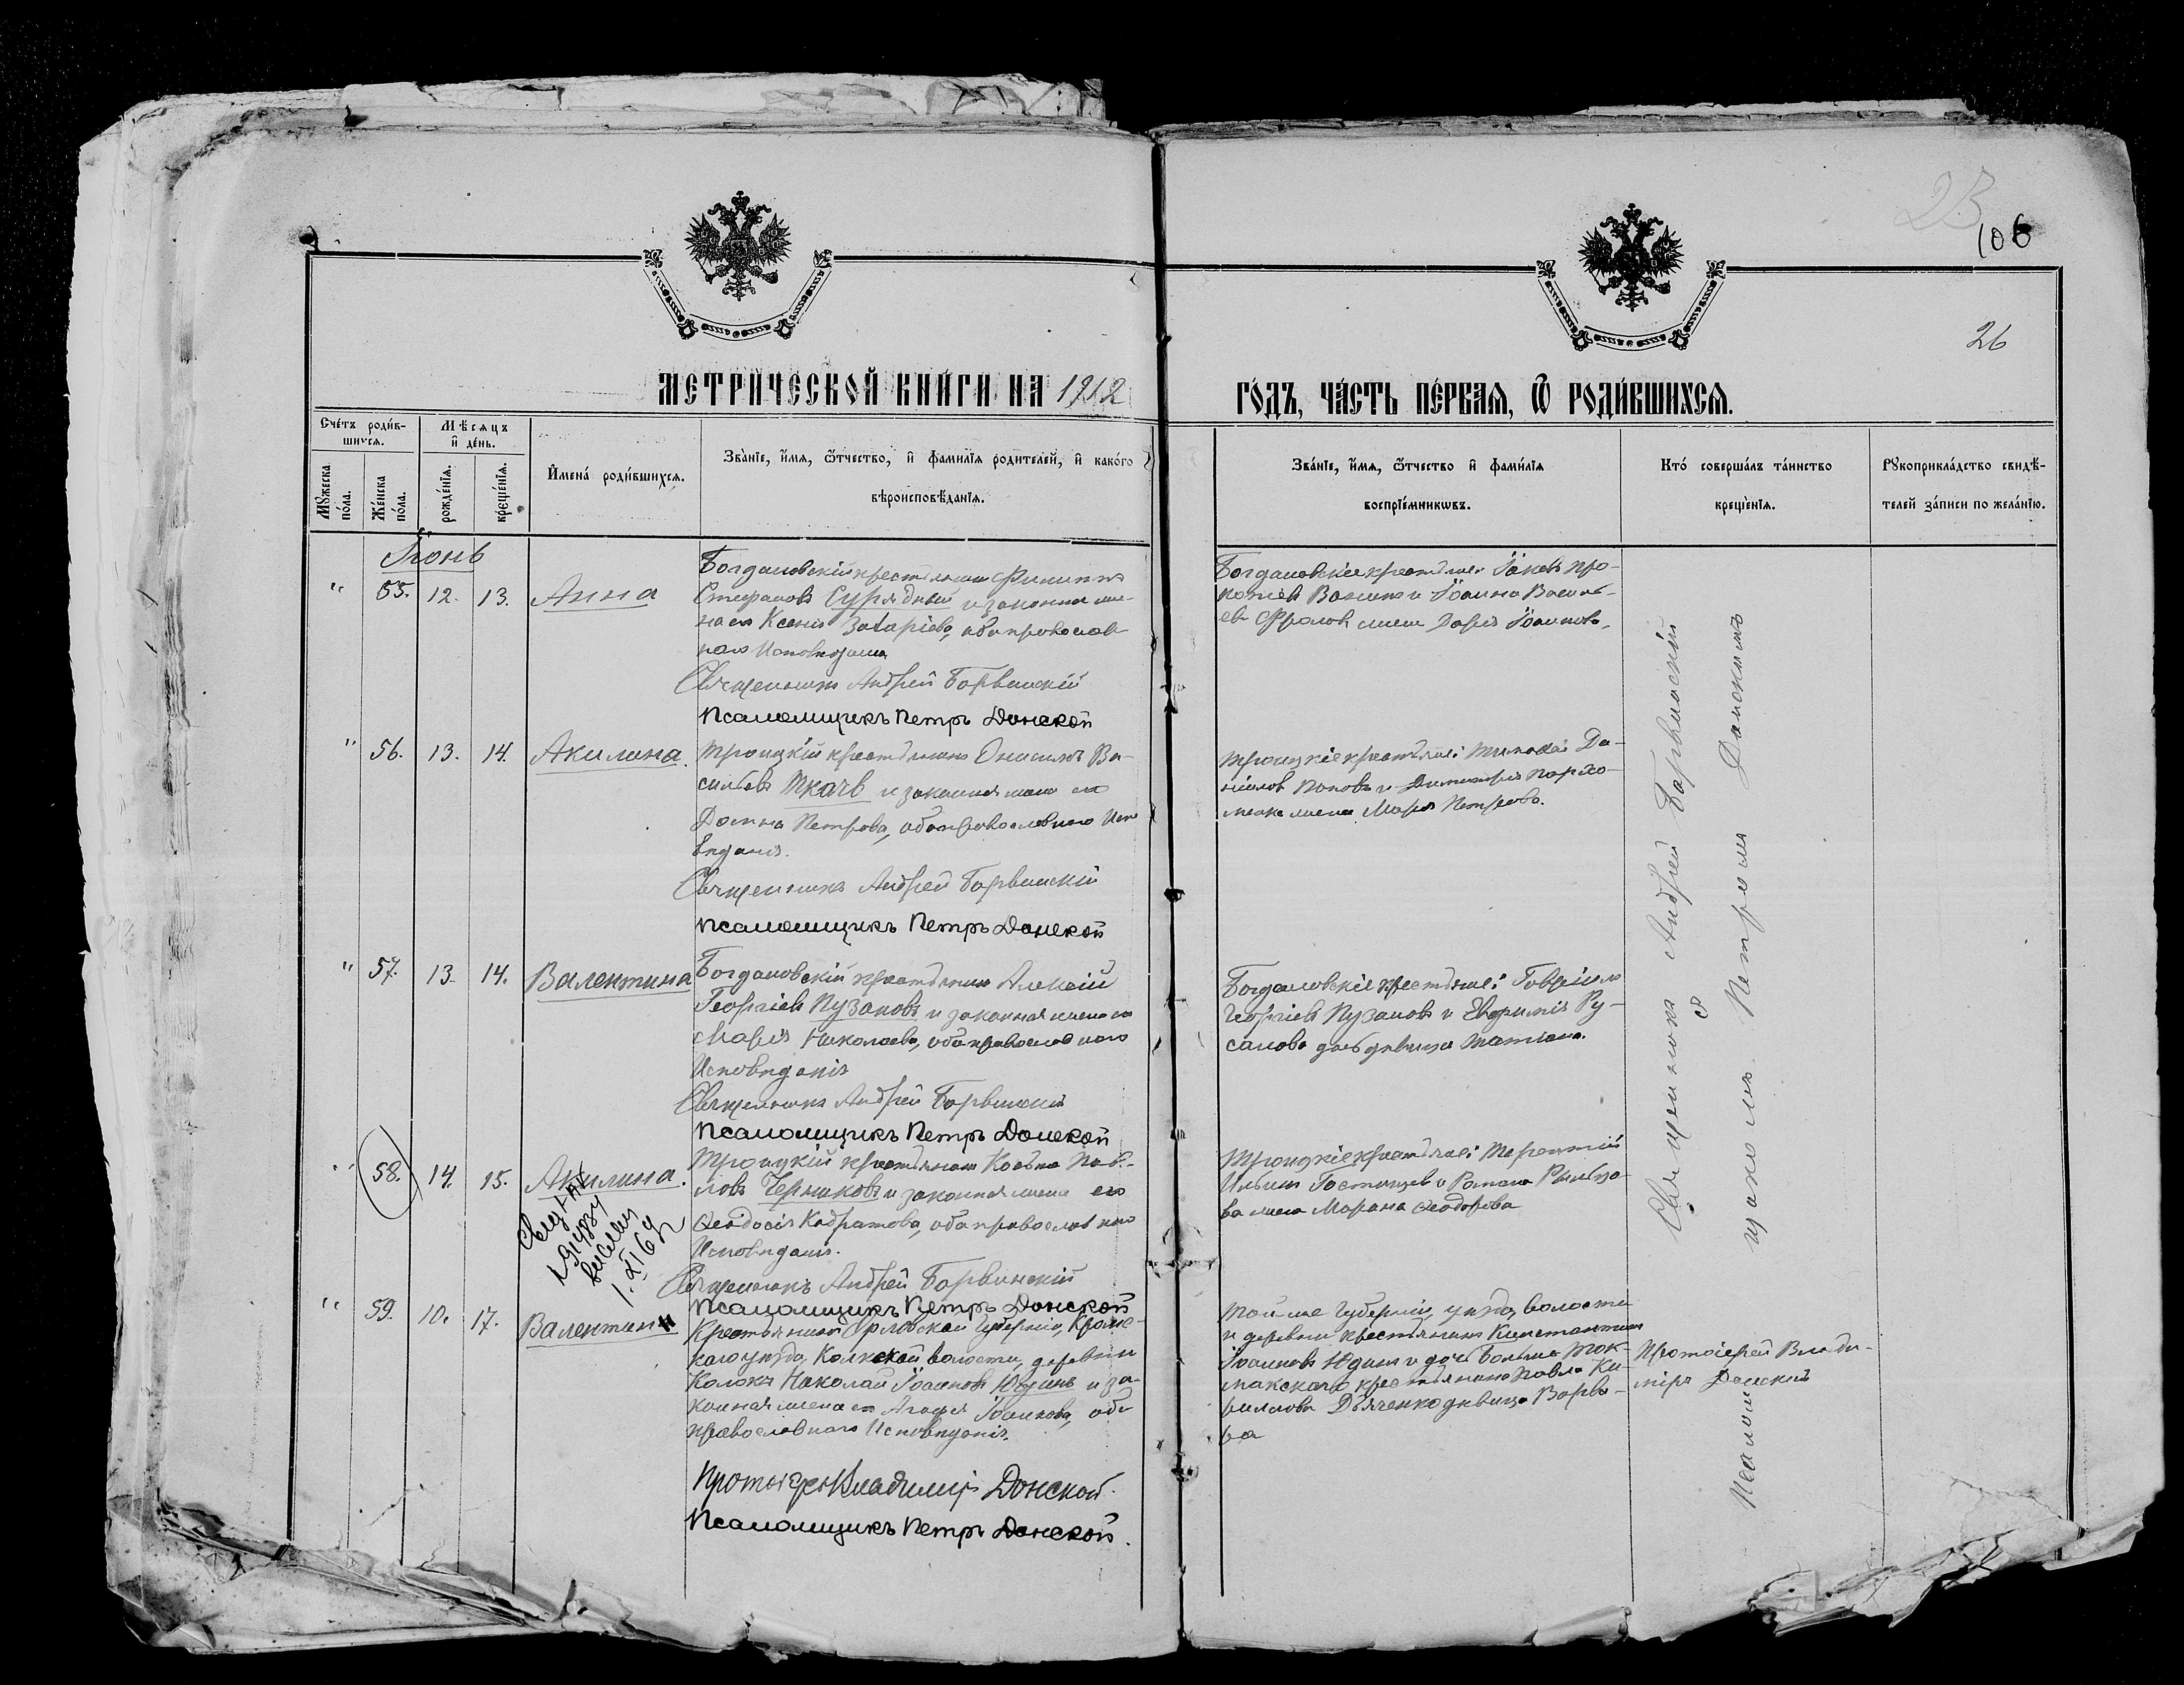 23
106
26
МЕТРИЧЕСКОЙ КНИГИ НА 1912
ГОДЪ, ЧАСТЬ ПЕРВАЯ, Ѿ РОДИВШИХСЯ.
Счетъ родив-
шихся.
Мѣсяцъ
и день.
Мужеска пола.
Женска пола.
рожденія.
крещенія.
Имена родившихся.
Званіе, имя, ѿтчество, и фамилія родителей, и какого
вѣроисповѣданія.
Званіе, имя, ѿтчество и фамилія
воспріемниковъ.
Кто совершалъ таинство
крещенія.
Рукоприкладство свидѣ-
телей записи по желанію.
Іюнь
" 55. 12. 13. Анна
Богдановскій крестьянинъ Филиппъ
Стефановъ Сурядный и законная же-
на его Ксенія Захаріева, оба православ
наго Исповѣданія
Священникъ Андрей Барвинскій
Псаломщикъ Петръ Донской
Богдановскіе крестьяне: Іаковъ Про-
Іоанна Василь-
евъ Фроловъ жена Дарія Іоаннова.
" 56. 13. 14. Акилина.
Троицкій крестьянинъ Онисимъ Ва-
сильевъ Ткачъ и законная жена его
Домна Петрова, оба православнаго Испо
вѣданія.
Священникъ Андрей Барвинскій
Псаломщикъ Петръ Донской
Троицкіе крестьяне: Тимофей Да-
ніиловъ Поповъ и Димитрія Пархо-
менко жена Марія Петрова.
" 57. 13. 14. Валентина
Богдановскій крестьянинъ Алексій
Георгіевъ Пузановъ и законная жена его
Марія Николаева, оба православнаго
Исповѣданія
Священникъ Андрей Барвинскій
Псаломщикъ Петръ Донской
Богдановскіе крестьяне: Гавріилъ
Георгіевъ Пузановъ и Евфимія Ру-
санова дочь дѣвица Татіана.
" 58. 14. 15. Акилина.
Троицкій крестьянинъ Косьма Пав-
ловъ Черниковъ и законная жена его
Ѳеодосія Кодратова, оба православнаго
Исповѣданія.
Священникъ Андрей Барвинскій
Псаломщикъ Петръ Донской
Троицкіе крестьяне: Терентій
Ильинъ Гостищевъ и Романа Рыльцо-
ва жена Марѳа Ѳеодорова
" 59. 10. 17. Валентин
Крестьянинъ Орловской Губерніи, Кром-
скаго уѣзда, волости, деревни
Николай Іоанновъ Юдинъ и за-
конная жена его Агафія Іоаннова, оба
православнаго Исповѣданія.
Протоіерей Владиміръ Донской.
Псаломщикъ Петръ Донской.
Той же Губерніи, уѣзда, волости
и деревни крестьянинъ Константинъ
Іоанновъ Юдинъ и дочь Больше Ток-
макскаго крестьянина Павла Ки-
риллова Дьяченко дѣвица Варва-
ра
Протоіерей Влади-
міръ Донской
Священникъ Андрей Барвинскій
съ
Псаломщикомъ Петромъ Донскимъ